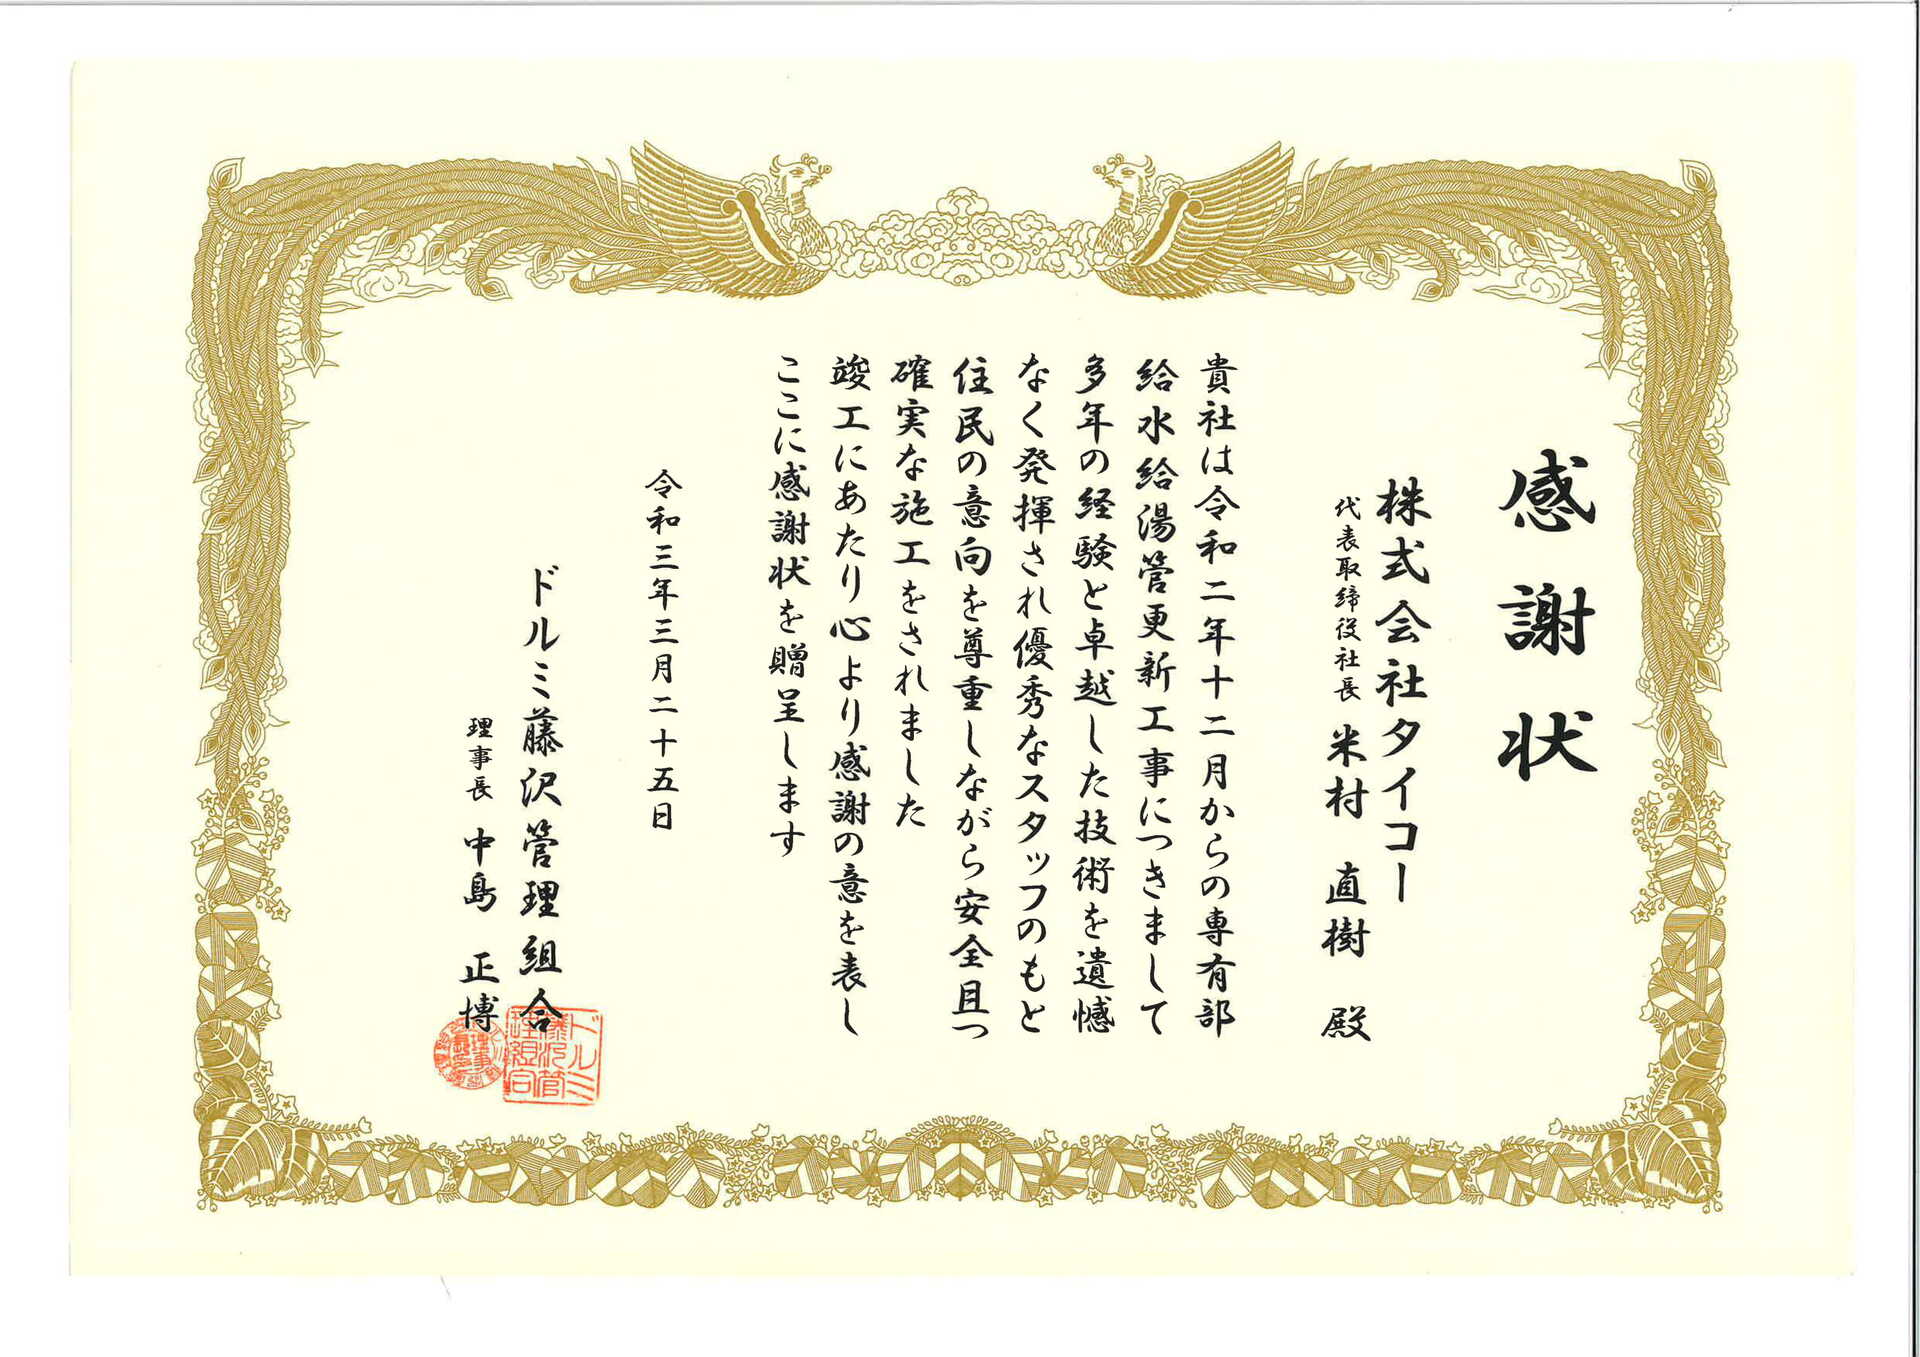 感謝状
株式会社タイコー
代表取締役社長 米村 直樹 殿
貴社は令和二年十二月からの専有部
給水給湯管更新工事につきまして
多年の経験と卓越した技術を遺憾
なく発揮され優秀なスタッフのもと
住民の意向を尊重しながら安全且つ
確実な施工をされました
竣工にあたり心より感謝の意を表し
ここに感謝状を贈呈します
令和三年三月二十五日
ドルミ藤沢管理組合
理事長 中島 正博
ドルミ
藤沢管
理組合